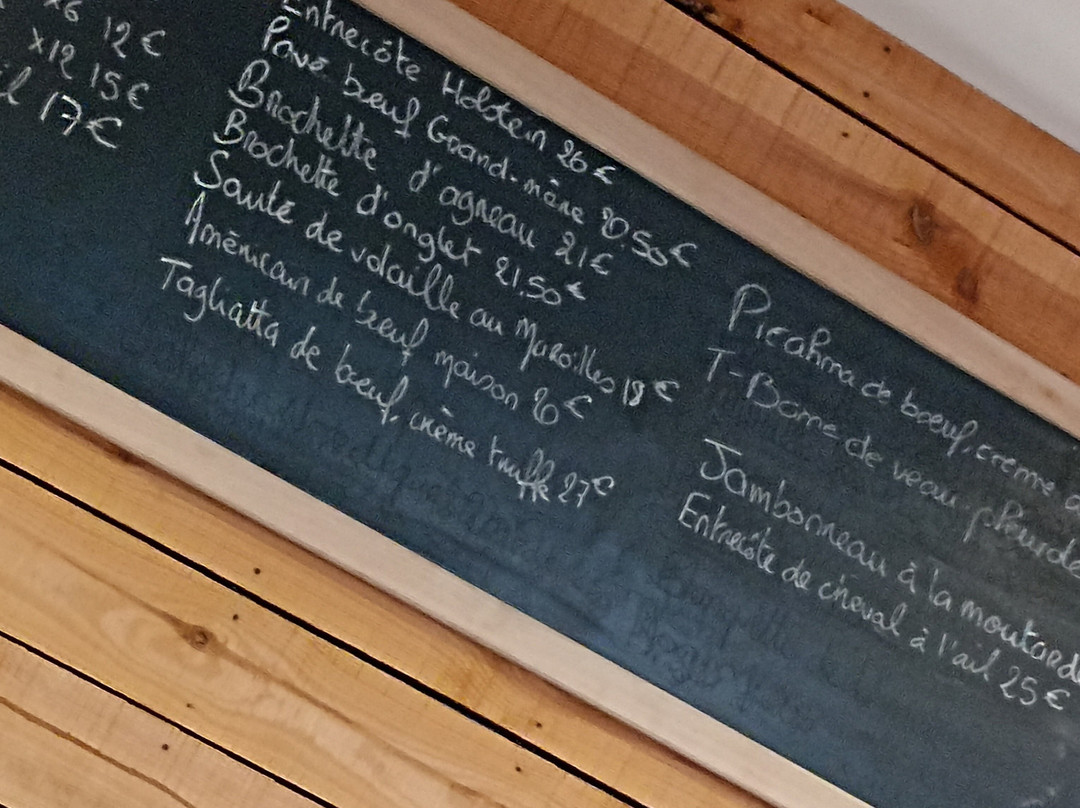 x6 12€
x12 15€
17€
Entrecôte Holstein 26€
Pavé boeuf Grand-mère 20.50€
Brochette d'agneau 21€
Brochette d'onglet 21,50€
Sauté de volaille au Maroilles 18€
Américain de boeuf maison 20€
Tagliatta de boeuf, crème truffe 27€
Picahna de boeuf, crème
T-Bone de veau
Jambonneau à la moutarde
Entrecôte de cheval à l'ail 25€